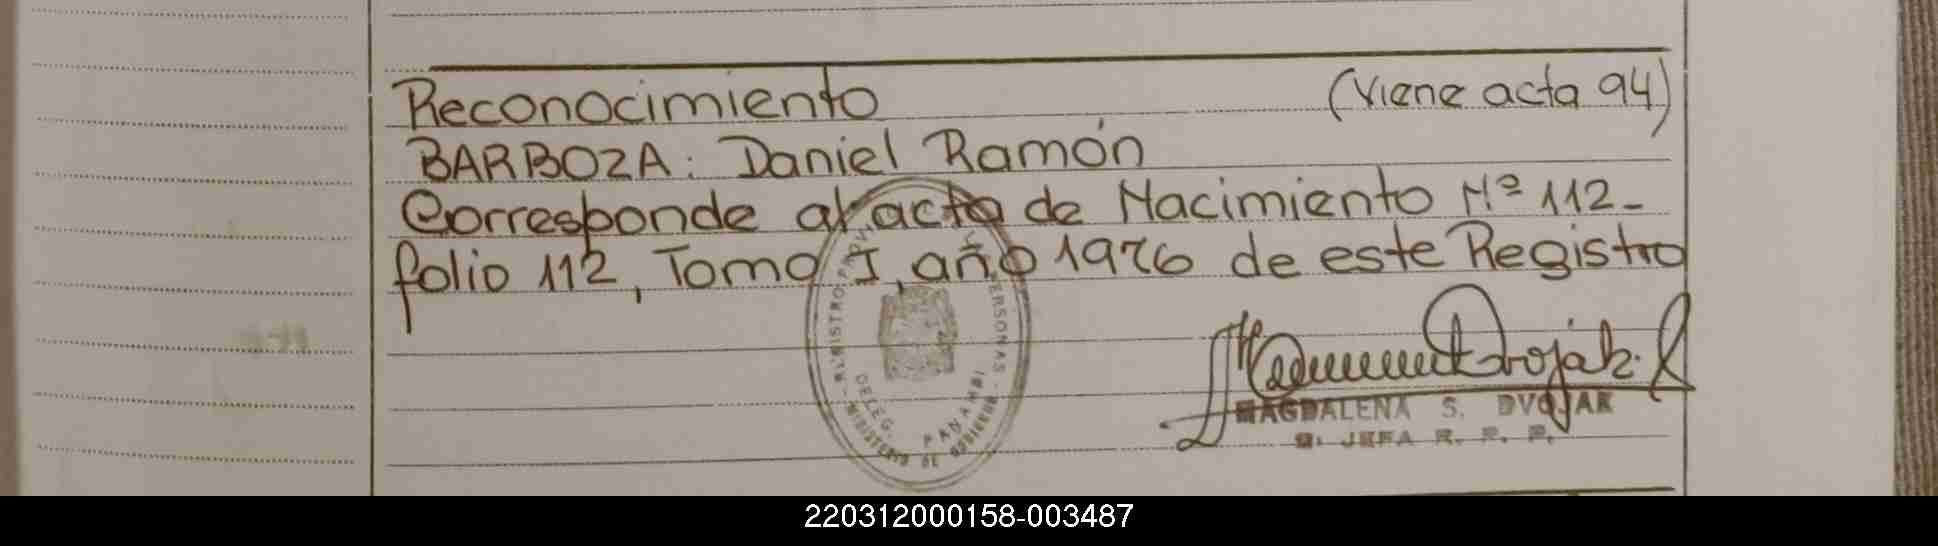 Reconocimiento (Viene acta 94)
BARBOZA: Daniel Ramón
Corresponde al acta de Nacimiento Nº 112-
folio 112, Tomo I, año 1976 de este Registro
PERSONAS
DELEG. PANAMBI
MINISTERIO DE GOBIERNO
MAGDALENA S. DVOJAK
JEFA R. P. P.
220312000158-003487